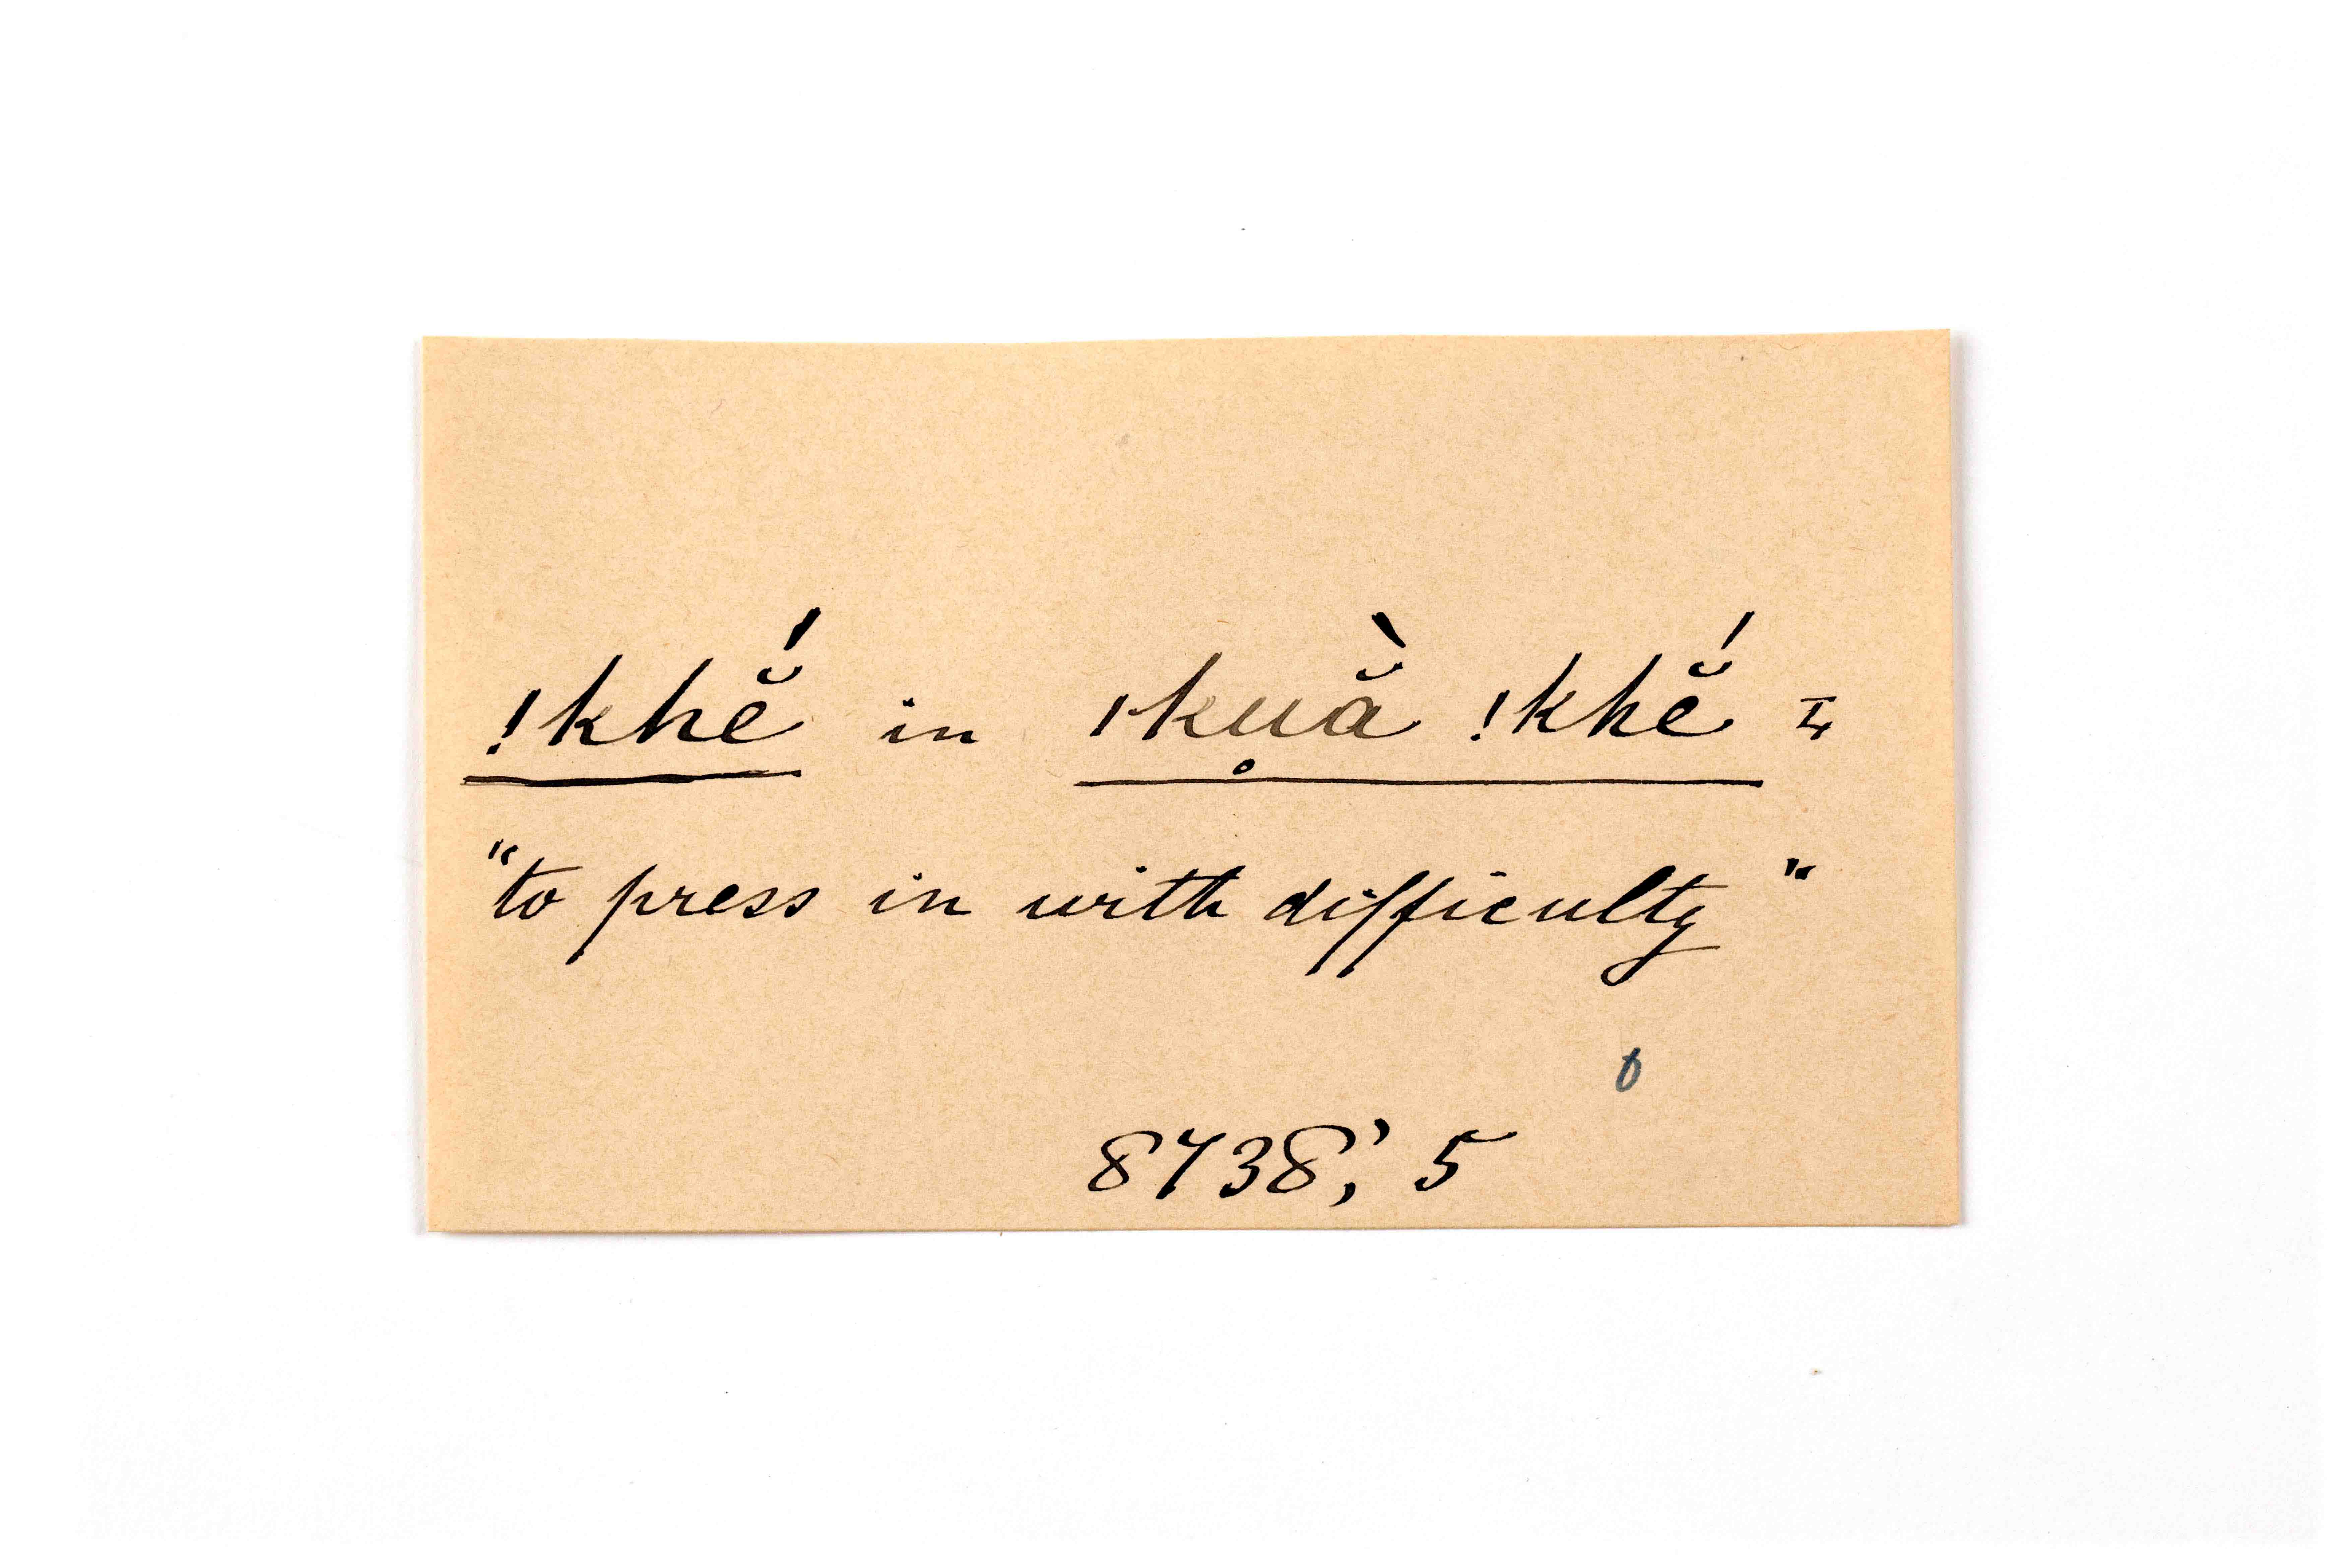 !khĕ́ in ǀku̥ằ !khĕ́ =
"to press in with difficulty"
8738; 5